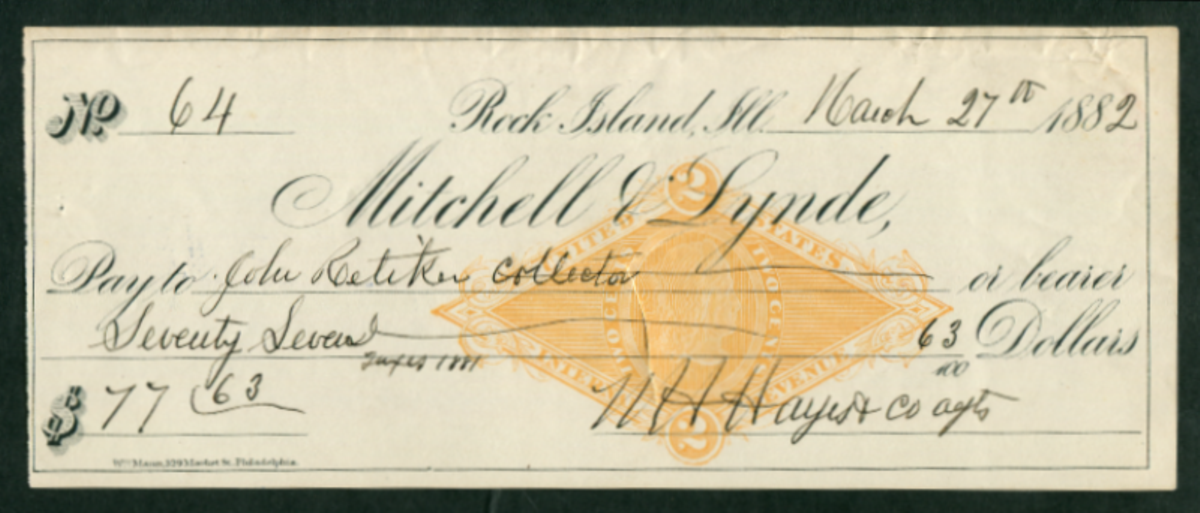 No. 64 Rock Island, Ill. March 27th 1882
Mitchell & Lynde,
Pay to John Retiker Collector or bearer
Seventy Seven 63/100 Dollars
Taxes 1881
$ 77 63
Hayes & Co agts
UNITED STATES
INTERNAL REVENUE
TWO CENTS
TWO CENTS
2
2
Wm Mann, 529 Market St. Philadelphia.